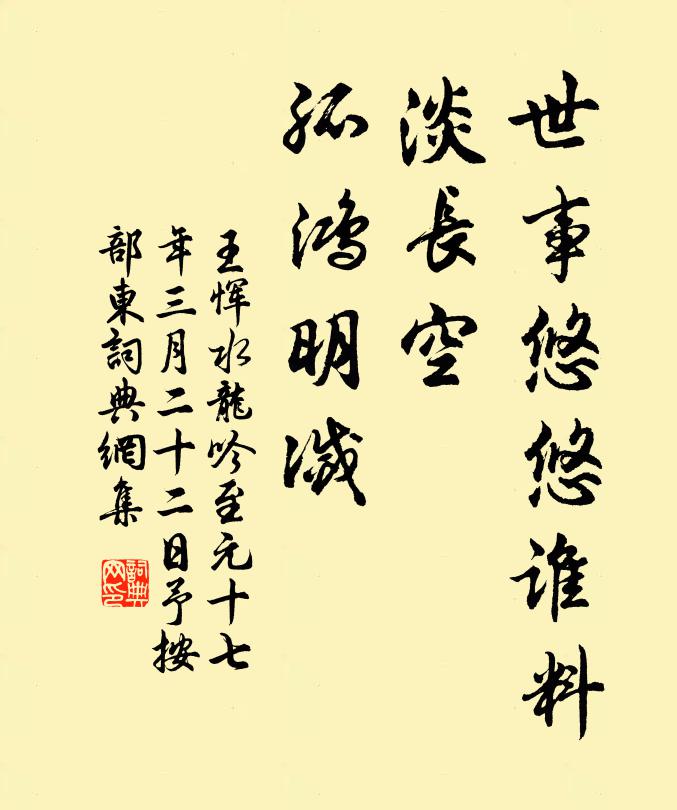 世事悠悠誰料
淡長空
孤鴻明滅
王惲水龍吟至元十七
年三月二十二日予按
部東詞典網集
詞典
网印